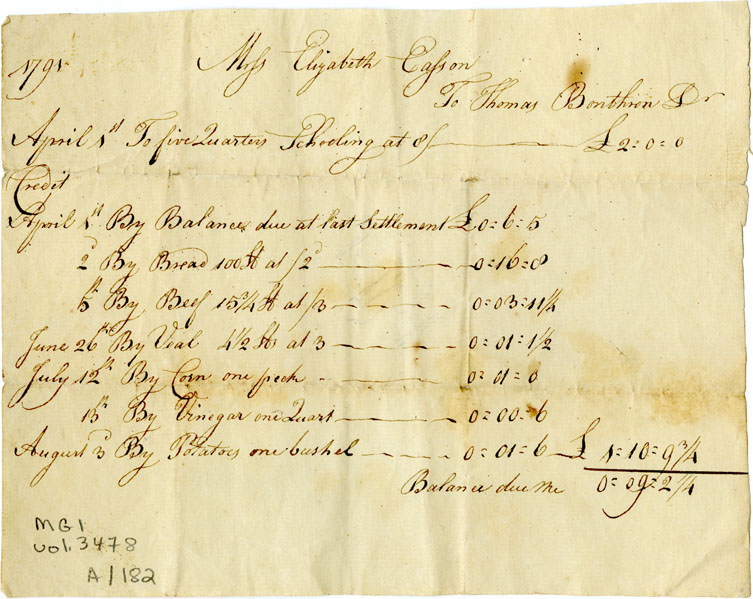 1791 Mrs Elizabeth Easson
To Thomas Bonthron Dr
April 1st To five Quarters Schooling at 8/ £2=0=0
Credit
April 1st By Balance due at last Settlement £0=6=5
2d By Bread 100 lb at /2d 0=16=8
5th By Beef 15 3/4 lb at /3 0=03=11 1/4
June 26th By Veal 4 1/2 lb at 3 0=01=1 1/2
July 12th By Corn one peck 0=01=0
15th By Vinegar one Quart 0=00=6
August 3d By Potatoes one bushel 0=01=6 £ 1=10=9 3/4
Balance due me 0=09=2 1/4
MG1
vol. 3478
A/182